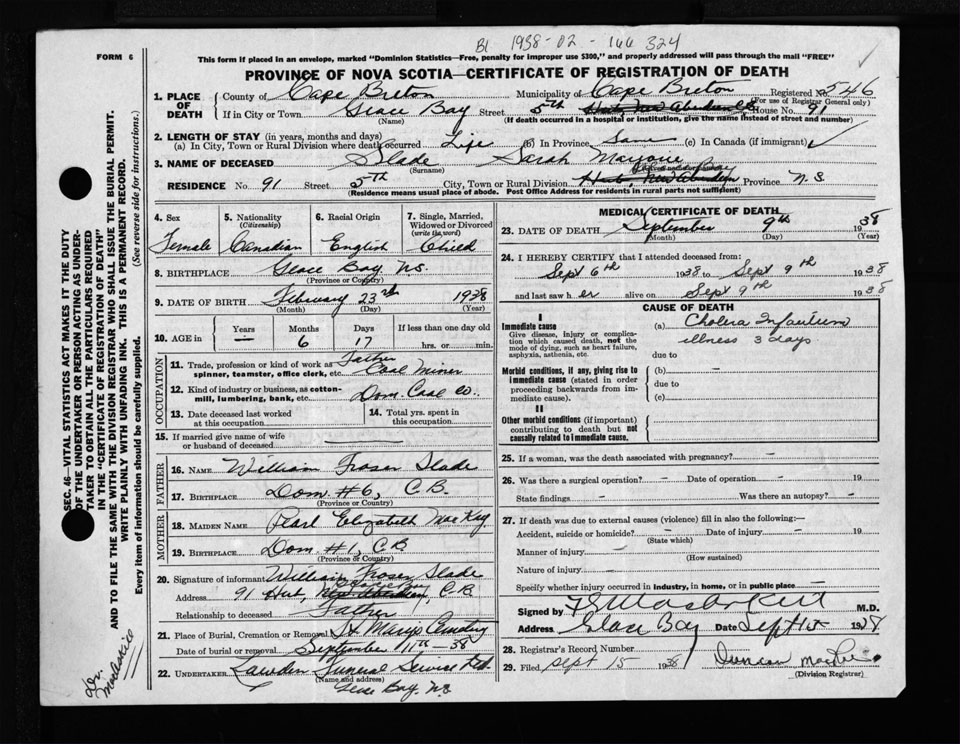 B1 1938-02-144 324
FORM 6
This form if placed in an envelope, marked "Dominion Statistics—Free, penalty for improper use $300," and properly addressed will pass through the mail "FREE"
PROVINCE OF NOVA SCOTIA—CERTIFICATE OF REGISTRATION OF DEATH
1. PLACE OF DEATH
County of Cape Breton Municipality of Cape Breton Registered No. 546
(For use of Registrar General only)
If in City or Town Glace Bay Street 5th House No. 91
(Name) (If death occurred in a hospital or institution, give the name instead of street and number)
2. LENGTH OF STAY (in years, months and days)
(a) In City, Town or Rural Division where death occurred Life (b) In Province Same (c) In Canada (if immigrant)
3. NAME OF DECEASED Slade Sarah Marjorie
(Surname)
RESIDENCE No. 91 Street 5th City, Town or Rural Division Province N.S.
(Residence means usual place of abode. Post Office Address for residents in rural parts not sufficient)
4. Sex Female
5. Nationality (Citizenship) Canadian
6. Racial Origin English
7. Single, Married, Widowed or Divorced (write the word) Child
8. BIRTHPLACE Glace Bay, N.S.
(Province or Country)
9. DATE OF BIRTH February 23rd 1938
(Month) (Day) (Year)
10. AGE in Years — Months 6 Days 17 If less than one day old hrs. or min.
OCCUPATION
11. Trade, profession or kind of work as spinner, teamster, office clerk, etc. Father Coal Miner
12. Kind of industry or business, as cotton-mill, lumbering, bank, etc. Dom. Coal Co.
13. Date deceased last worked at this occupation
14. Total yrs. spent in this occupation
15. If married give name of wife or husband of deceased
FATHER
16. NAME William Fraser Slade
17. BIRTHPLACE Dom #6, C.B.
(Province or Country)
MOTHER
18. MAIDEN NAME Pearl Elizabeth MacKay
19. BIRTHPLACE Dom. #1, C.B.
(Province or Country)
20. Signature of informant William Fraser Slade
Address 91 Glace Bay, C.B.
Relationship to deceased Father
21. Place of Burial, Cremation or Removal St Marys Cemetery
Date of burial or removal September 11th - 38
22. UNDERTAKER Funeral Service Ltd.
(Name and address)
Glace Bay, N.S.
MEDICAL CERTIFICATE OF DEATH
23. DATE OF DEATH September 9th 1938
(Month) (Day) (Year)
24. I HEREBY CERTIFY that I attended deceased from:
Sept 6th 1938 to Sept 9th 1938
and last saw her alive on Sept 9th 1938
CAUSE OF DEATH
I
Immediate cause
Give disease, injury or complication which caused death, not the mode of dying, such as heart failure, asphyxia, asthenia, etc.
(a) Cholera Infantum
illness 3 days
due to
Morbid conditions, if any, giving rise to immediate cause (stated in order proceeding backwards from immediate cause).
(b) —
due to
(c)
II
Other morbid conditions (if important) contributing to death but not causally related to immediate cause.
25. If a woman, was the death associated with pregnancy? —
26. Was there a surgical operation? — Date of operation — 19
State findings — Was there an autopsy? —
27. If death was due to external causes (violence) fill in also the following:—
Accident, suicide or homicide? — Date of injury — 19
(State which)
Manner of injury —
(How sustained)
Nature of injury —
Specify whether injury occurred in industry, in home, or in public place —
Signed by M.D.
Address Glace Bay Date Sept 15 1938
28. Registrar's Record Number
29. Filed Sept 15 1938 Duncan
(Division Registrar)
SEC. 46—VITAL STATISTICS ACT MAKES IT THE DUTY OF THE UNDERTAKER OR PERSON ACTING AS UNDERTAKER TO OBTAIN ALL THE PARTICULARS REQUIRED IN THE "CERTIFICATE OF REGISTRATION OF DEATH" AND TO FILE THE SAME WITH THE DIVISION REGISTRAR WHO SHALL ISSUE THE BURIAL PERMIT.
WRITE PLAINLY WITH UNFADING INK. THIS IS A PERMANENT RECORD.
Every item of information should be carefully supplied. (See reverse side for instructions.)
Dr.